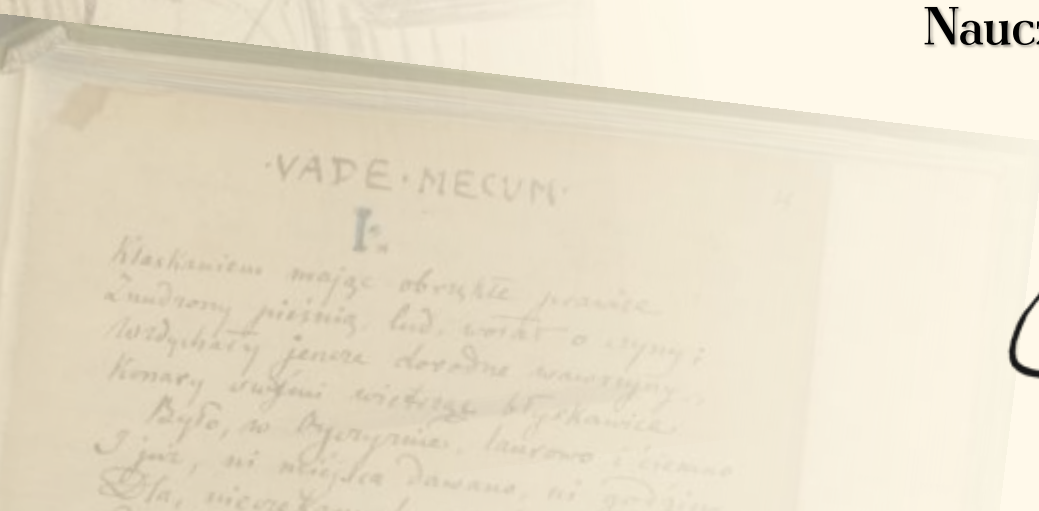 Naucz
·VADE·MECUM·
I.
Klaskaniem mając obrzękłe prawice
Znudzony pieśnią, lud, wołał o czyny;
Wzdychały jeszcze dorodne wawrzyny,
Konary swymi wietrząc błyskawice.
Było, w Ojczyźnie, laurowo i ciemno
I już, ni miejsca dawano, ni godziny
Dla,